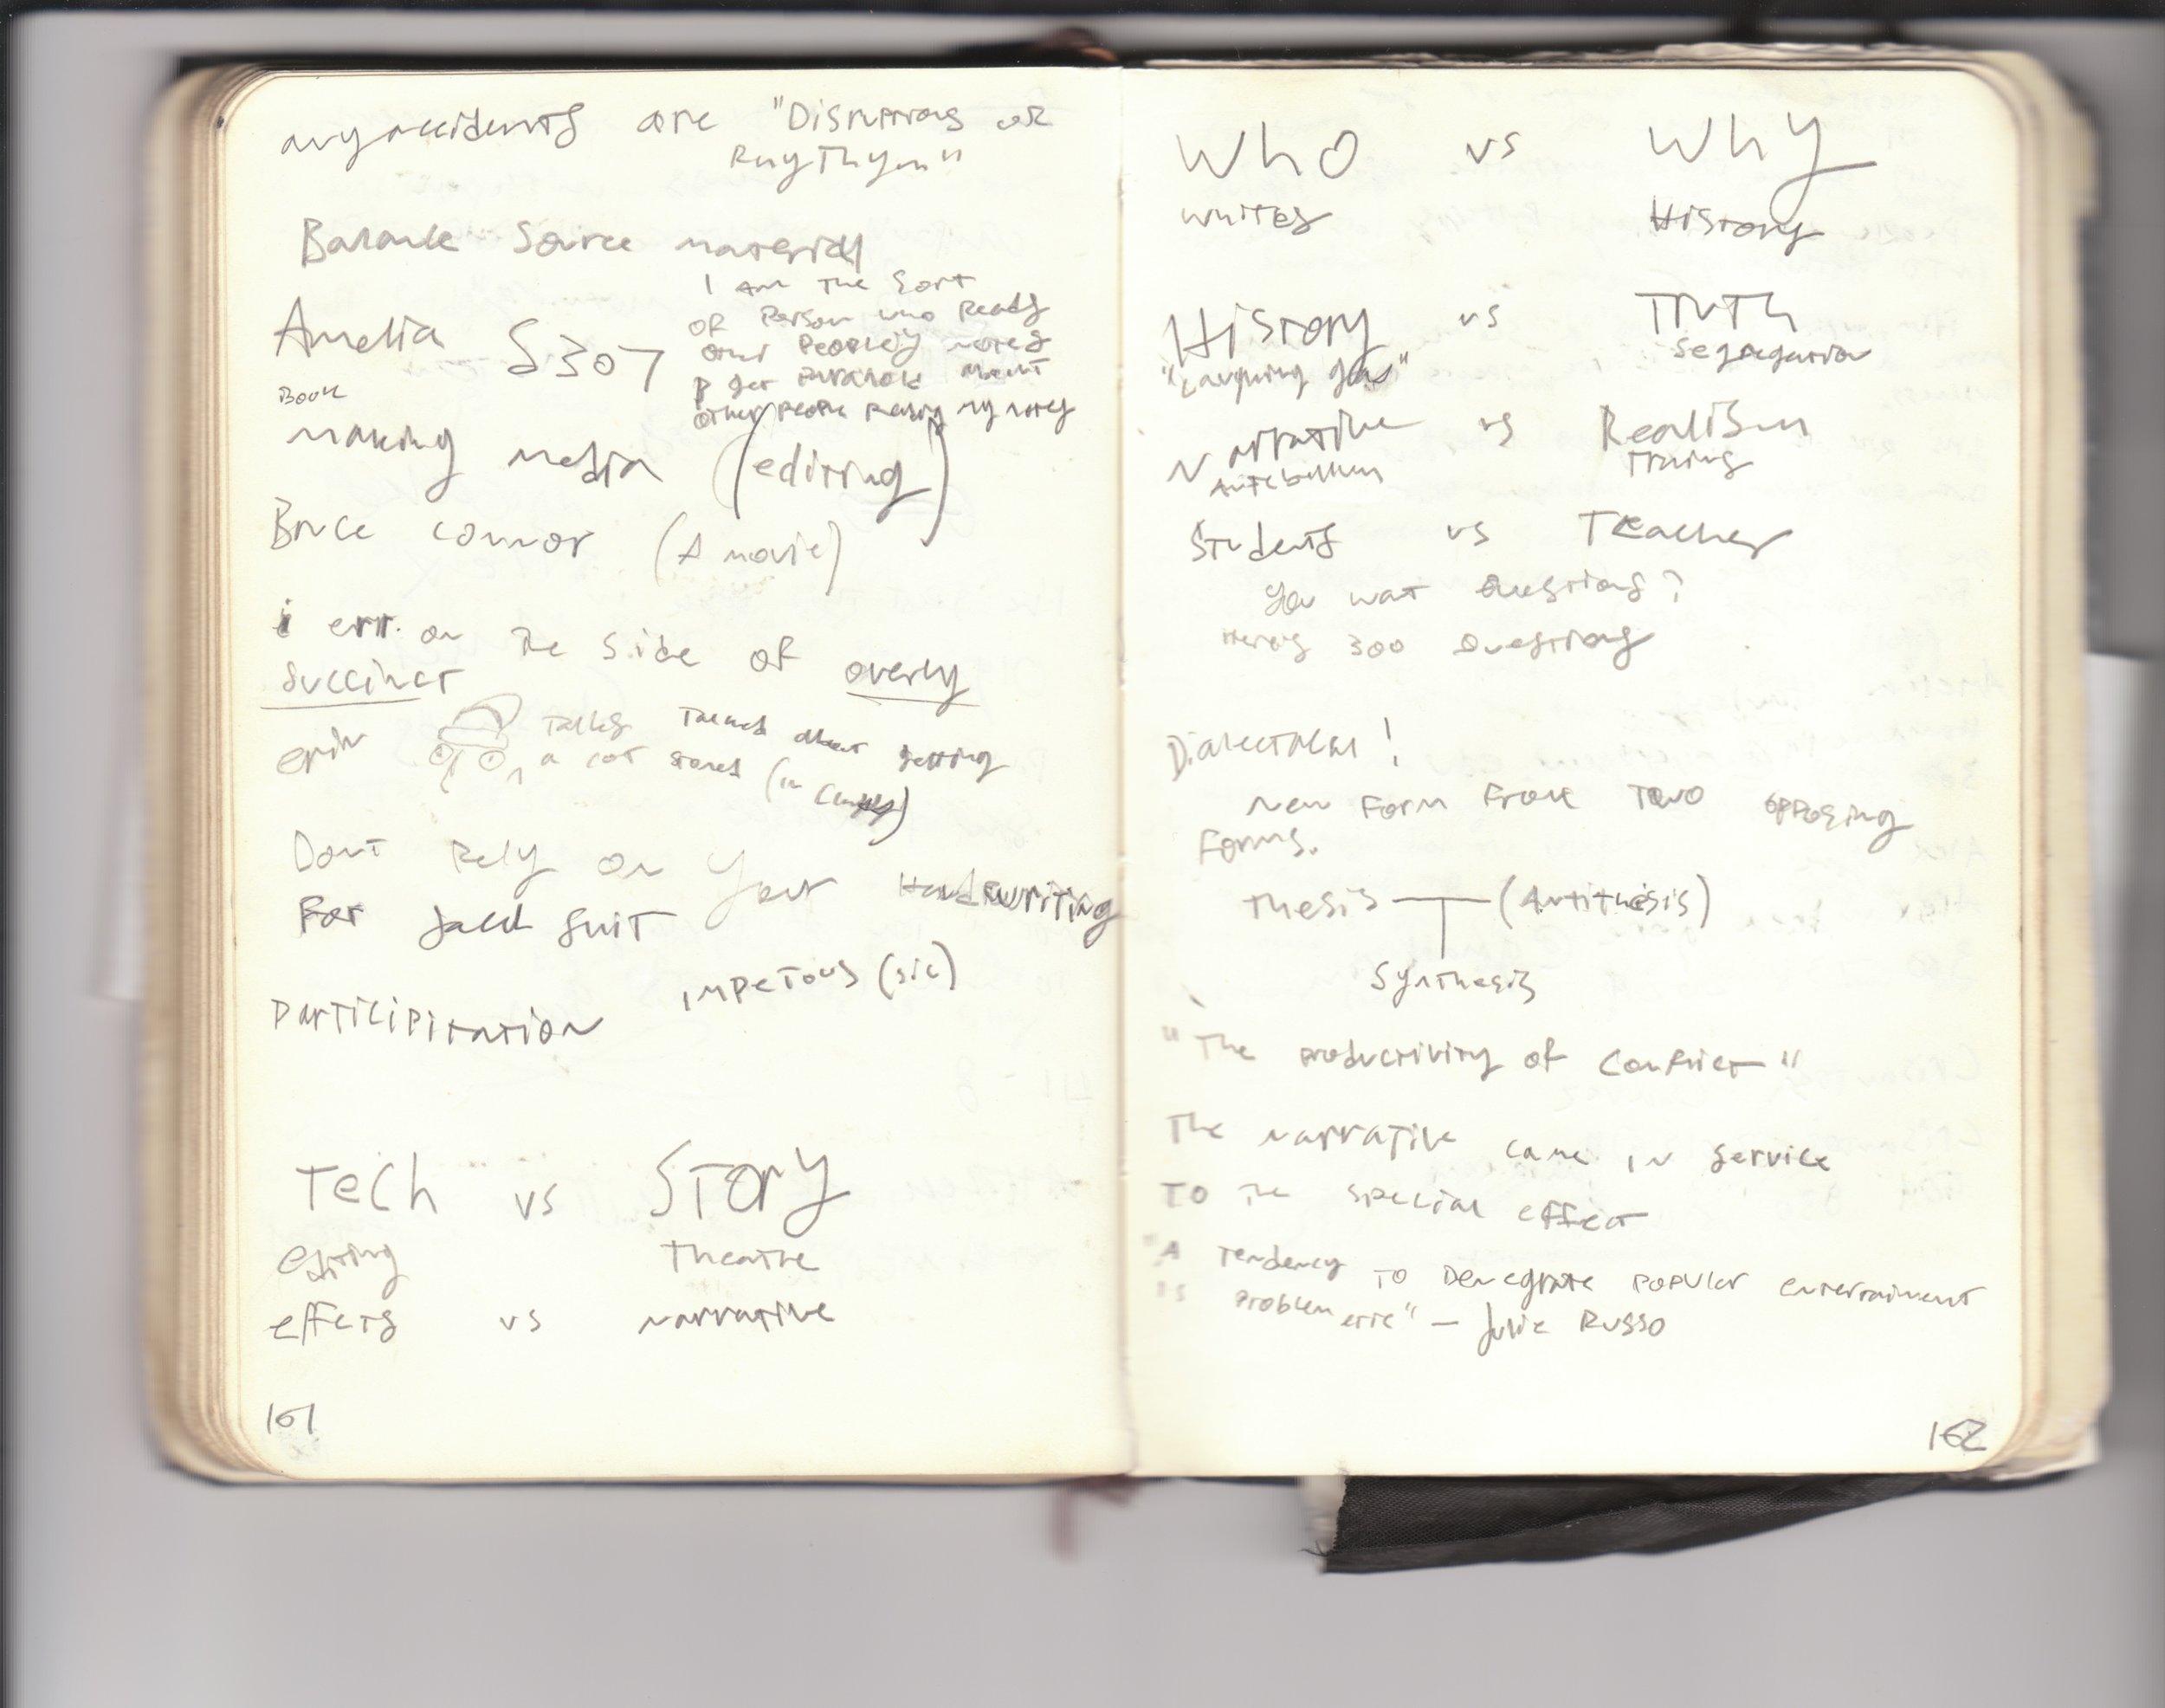 my accidents are "Disruptions of
Rhythym"
Source material
I am the sort
of Person who Reads
other People's notes
get Paranoid about
other People Reading my notes
Amelia S307
Book
making media (editing)
Bruce Connor (A movie)
i err on the side of overly
succinct
erin talks Talked about getting
a cat stoned (in
Dont Rely on your Handwriting
For Jack shit
impetous (sic)
Participitation
Tech vs Story
editing Theatre
effects vs narrative
161
Who vs Why
whites History
History vs Truth
"Laughing gas" segregation
Narrative vs Realism
Antebellum
Students vs Teacher
You want Questions?
Here's 300 Questions
Dialectical!
New Form From Two opposing
Forms.
Thesis (Antithesis)
Synthesis
"The productivity of conflict"
The narrative came in service
To the special effect
"A tendency to Denegrate popular entertainment
is problematic" — Julie Russo
162